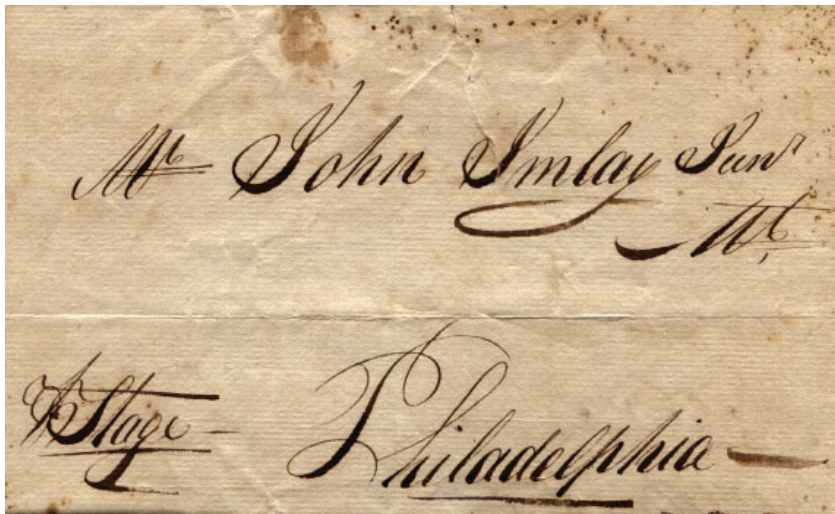 Mr John Imlay Junr
Mt
⅌ Stage
Philadelphia